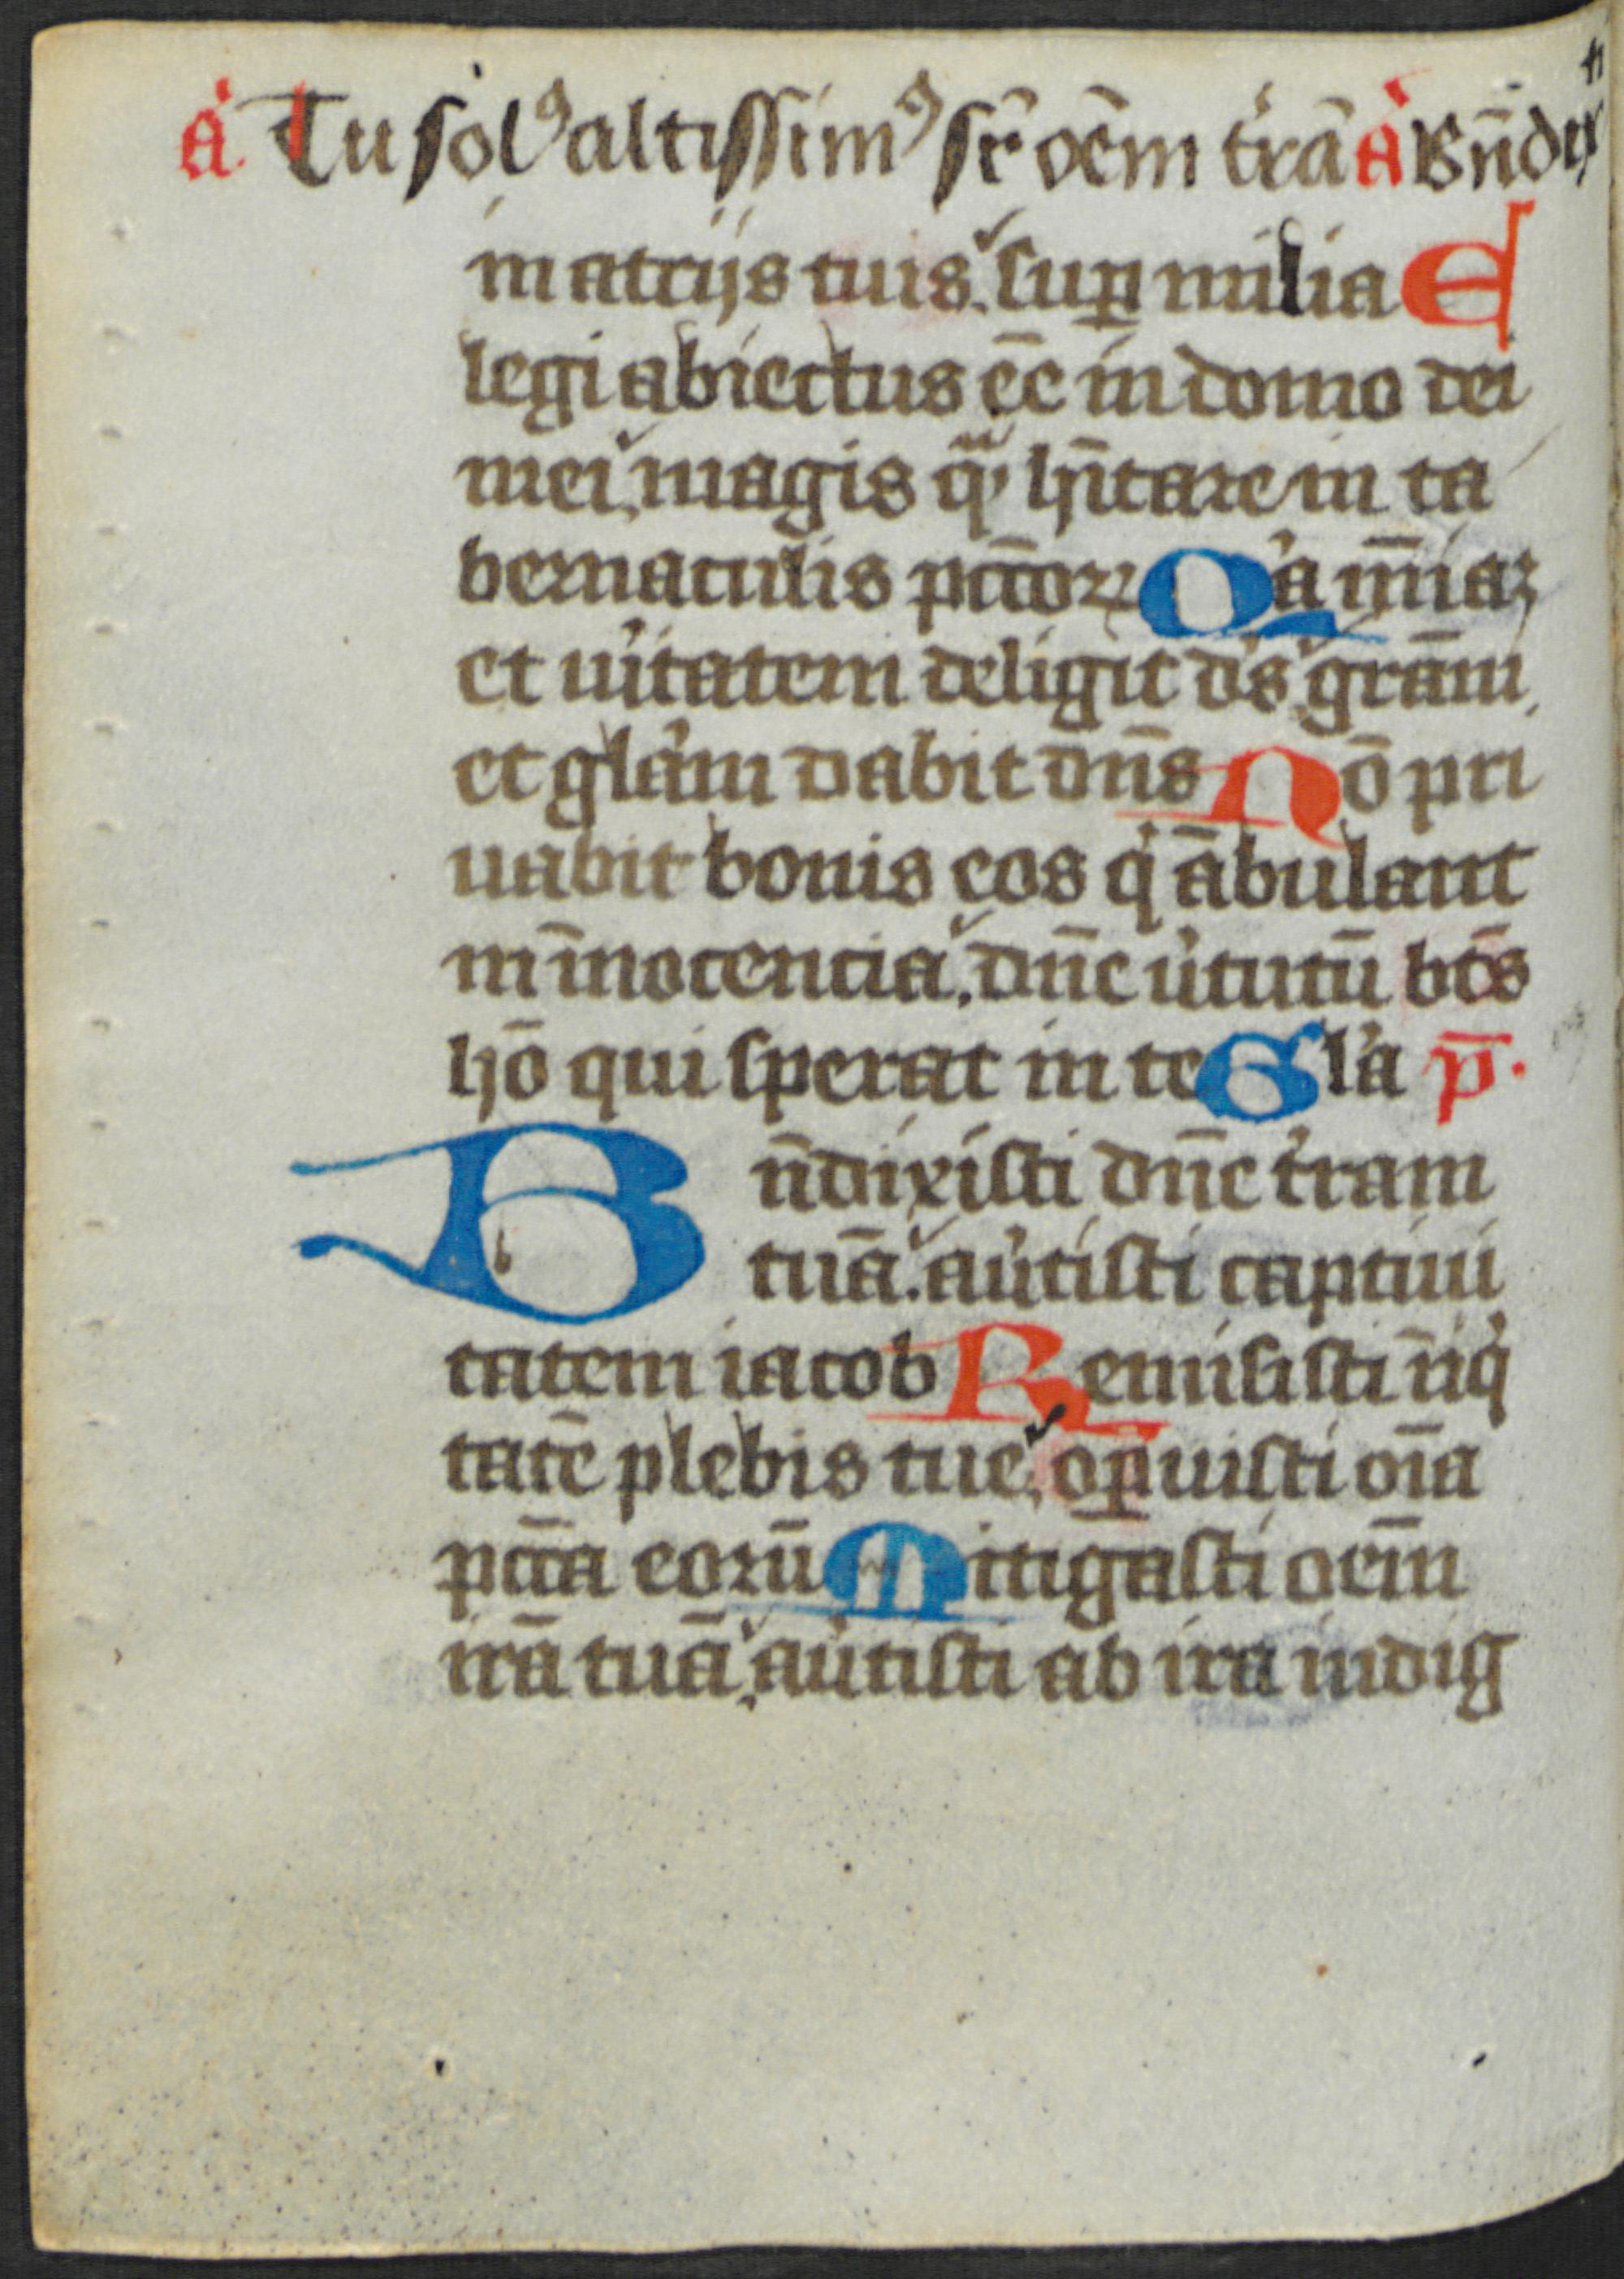 a̍ Tu solꝰ altissimꝰ sr̄ oēm tr̄ā a̍ Bn̄dix
in atrijs tuis. suꝑ milia E
legi abiectus ēē in domo dei
mei magis qͣ hītare in ta
bernaculis pc̄coꝝ Qꝛa mīaꝫ
et ūitatem deligit ds̄ grām
et glām dabit dn̄s Nō pri
uabit bonis eos qͥ ābulant
in īnocencia, dn̄e ūtutū bt̄s
hō qui sperat in te Gla p̄.
Bn̄dixisti dn̄e tr̄am
tuā. aūtisti captiui
tatem iacob Remisisti īiqͥ
tatē plebis tue, oꝑuisti oīa
pc̄ca eorū Mitigasti oēm
irā tuā, aūtisti ab ira indig